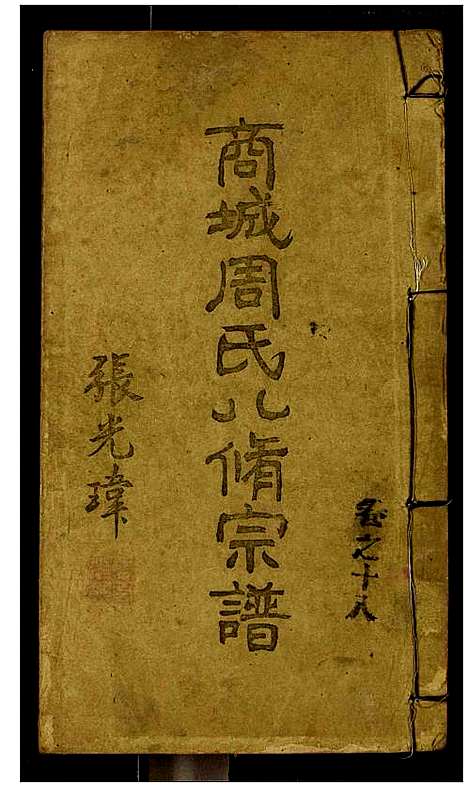 卷之十八
商城周氏八脩宗譜
張光瑋